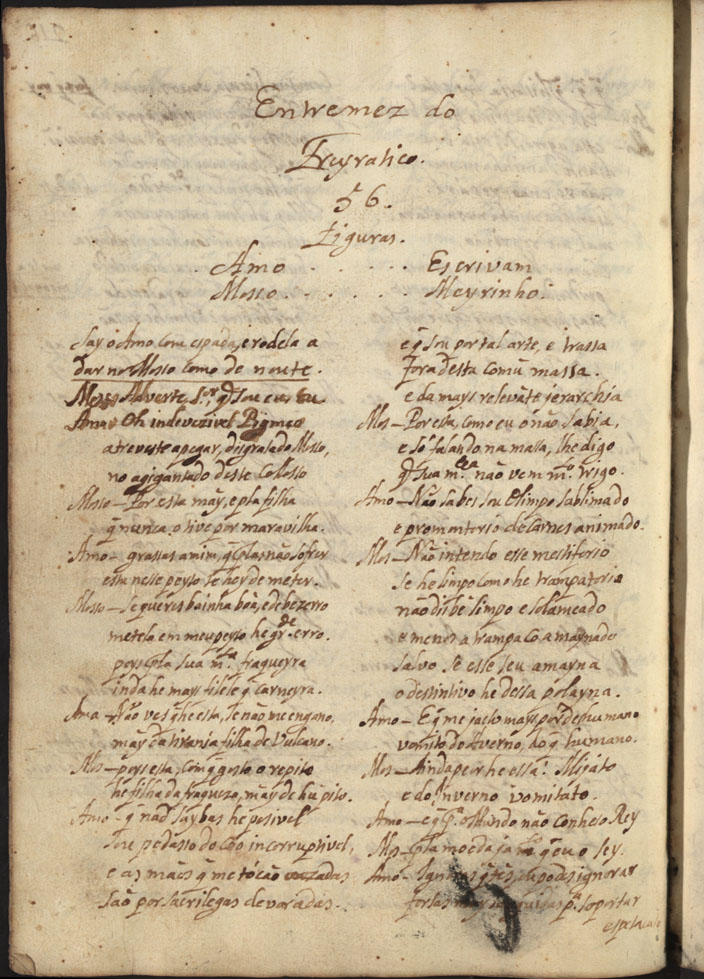 Entremez do
Freyratico.
56.
Figuras.
Amo . . . . . Escrivam
Mosso . . . . . Meyrinho.
Say o Amo com espada, e rodela a
dar no Mosso como de noute.
Mosso Adverte, S.or, q̃ sou eu, tu
Amo Oh indevizivel Pigmeo
atreveste a pegar, disgrasado Mosso,
no agigantado deste Colosso
Mosso – Por esta may, e pla filha
q̃ nunca o tive por maravilha.
Amo – grassas a mim, q̃ plas não sofrer
esta nese peyto te hey de meter.
Mosso – Se queres bainha boa, e de bezerro
metela em meu peyto he gr.de erro.
poys pla sua m.ta fraqueyra
inda he mays filele q̃ carneyra.
Amo – Não ves q̃ he esta, se não me engano,
may da tirania filha de Vulcano.
Mos – poys esta, com q̃ gosto o repito
he filha da fraqueza, may de hũ pito.
Amo – q̃ nad saybas he posivel
Sou pedasso do Ceo incorruptivel,
e as mãos q̃ me tocão ouzadas
são por sacrilegas devoradas.
e q̃ sou por tal arte, e trassa
fora desta comũ massa.
e da mays relevãte jerarchia
Mos – Por essa, como eu o não sabia,
e só falando na massa, lhe digo
q̃ sua m.cea não vem m.to trigo.
Amo – Não sabes sou Olimpo sublimado
e promontorio de Carnes animado.
Mos – Não intendo esse mestiforio
se he limpo como he trampatorio
não disbe limpo e solameado
e menos a trampa co amaynado
salvo se esse seu amayna
o destintivo he dessa polayna.
Amo – E q̃ me jacto mays por de humano
vomito do Averno, do q̃ humano.
Mos – Ainda peor he essa! Mijato
e do Inverno vomitato.
Amo – e q̃ p.a o Mundo não conheso Rey
Mos – pla moeda ja m.to q̃ eu o sey.
Amo – Ignoras q̃ tẽs, cuyo designorar
forsas may q̃ p.a soportar
espetaculo